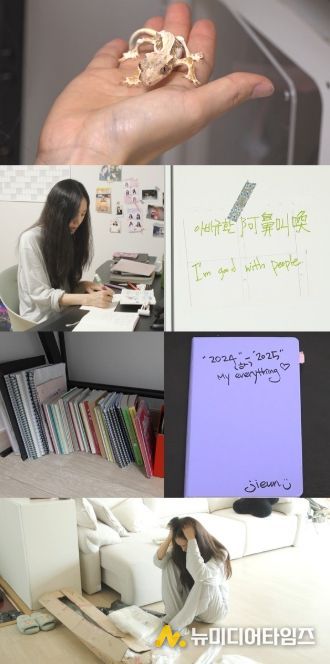 아비규환 阿鼻叫喚
I'm good with people
"2024" "2025"
My everything♡
jieun
뉴미디어타임즈